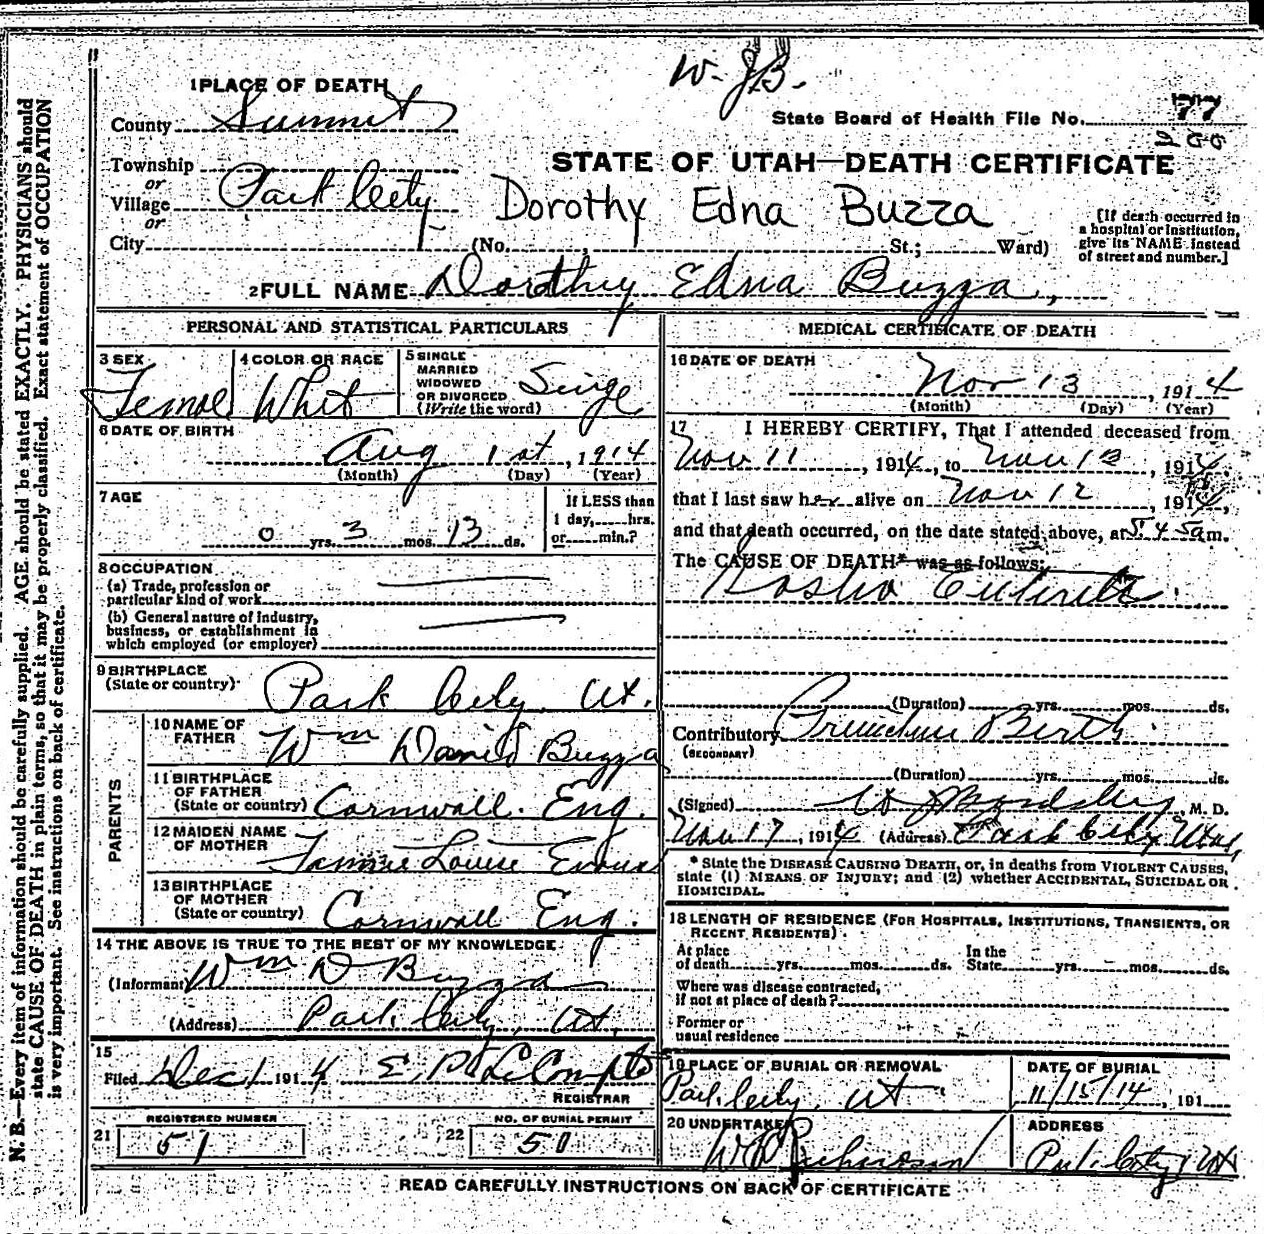 W. J. B.
1 PLACE OF DEATH
County Summit
State Board of Health File No. 77
Township
or
Village Park City
or
City
STATE OF UTAH—DEATH CERTIFICATE
Dorothy Edna Buzza
(No. , St.; Ward)
[If death occurred in
a hospital or institution,
give its NAME instead
of street and number.]
2 FULL NAME Dorothy Edna Buzza,
PERSONAL AND STATISTICAL PARTICULARS
3 SEX
Female
4 COLOR OR RACE
Whit
5 SINGLE
MARRIED
WIDOWED
OR DIVORCED
(Write the word)
Singe
6 DATE OF BIRTH
Aug 1st, 1914
(Month) (Day) (Year)
7 AGE
0 yrs. 3 mos. 13 ds.
If LESS than
1 day, hrs.
or min.?
8 OCCUPATION
(a) Trade, profession or
particular kind of work
(b) General nature of industry,
business, or establishment in
which employed (or employer)
9 BIRTHPLACE
(State or country)
Park City Ut.
PARENTS
10 NAME OF
FATHER
Wm Daniel Buzza
11 BIRTHPLACE
OF FATHER
(State or country)
Cornwall. Eng.
12 MAIDEN NAME
OF MOTHER
Louise Evans
13 BIRTHPLACE
OF MOTHER
(State or country)
Cornwall Eng.
14 THE ABOVE IS TRUE TO THE BEST OF MY KNOWLEDGE
(Informant) Wm D Buzza
(Address) Park City, Ut.
15
Filed Dec 1 1914 E. P. LeCompte
REGISTRAR
REGISTERED NUMBER
21 51
NO. OF BURIAL PERMIT
22 50
MEDICAL CERTIFICATE OF DEATH
16 DATE OF DEATH
Nov 13, 1914
(Month) (Day) (Year)
17 I HEREBY CERTIFY, That I attended deceased from
Nov 11, 1914, to Nov 13, 1914,
that I last saw her alive on Nov 12 1914,
and that death occurred, on the date stated above, at 5.45 a m.
The CAUSE OF DEATH* was as follows:
Gastro
(Duration) yrs. mos. ds.
Contributory Birth
(SECONDARY)
(Duration) yrs. mos. ds.
(Signed) M. D.
Nov 17, 1914 (Address) Park City Utah,
* State the DISEASE CAUSING DEATH, or, in deaths from VIOLENT CAUSES,
state (1) MEANS OF INJURY; and (2) whether ACCIDENTAL, SUICIDAL OR
HOMICIDAL.
18 LENGTH OF RESIDENCE (FOR HOSPITALS, INSTITUTIONS, TRANSIENTS, OR
RECENT RESIDENTS)
At place In the
of death yrs. mos. ds. State yrs. mos. ds.
Where was disease contracted,
if not at place of death?
Former or
usual residence
19 PLACE OF BURIAL OR REMOVAL
Park City, Ut
DATE OF BURIAL
11/15/14, 191
20 UNDERTAKER
ADDRESS
Park City Ut
READ CAREFULLY INSTRUCTIONS ON BACK OF CERTIFICATE
N. B.—Every item of information should be carefully supplied. AGE should be stated EXACTLY. PHYSICIANS should
state CAUSE OF DEATH in plain terms, so that it may be properly classified. Exact statement of OCCUPATION
is very important. See instructions on back of certificate.